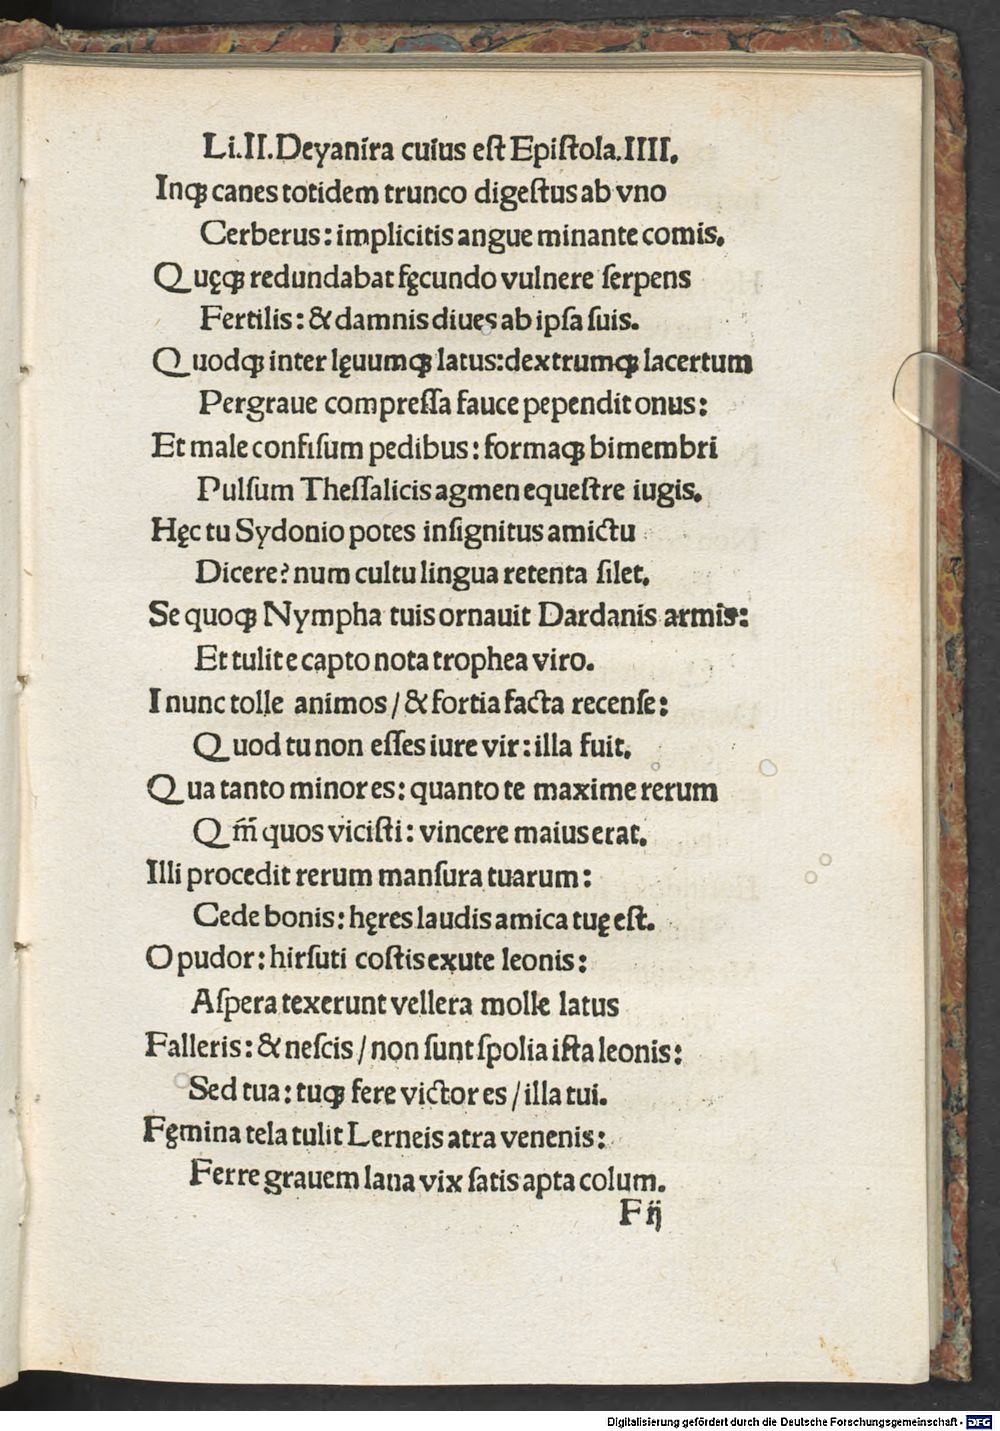 Li.II.Deyanira cuius eſt Epiſtola.IIII.
Inqꝫ canes totidem trunco digeſtus ab vno
Cerberus: implicitis angue minante comis.
Quęqꝫ redundabat fęcundo vulnere ſerpens
Fertilis: & damnis diues ab ipſa ſuis.
Quodqꝫ inter lęuumqꝫ latus: dextrumqꝫ lacertum
Pergraue compreſſa fauce pependit onus:
Et male confiſum pedibus: formaqꝫ bimembri
Pulſum Theſſalicis agmen equeſtre iugis.
Hęc tu Sydonio potes inſignitus amictu
Dicere? num cultu lingua retenta ſilet.
Se quoqꝫ Nympha tuis ornauit Dardanis armis:
Et tulit e capto nota trophea viro.
I nunc tolle animos / & fortia facta recenſe:
Quod tu non eſſes iure vir: illa fuit.
Qua tanto minor es: quanto te maxime rerum
Qm̄ quos viciſti: vincere maius erat.
Illi procedit rerum manſura tuarum:
Cede bonis: hęres laudis amica tuę eſt.
O pudor: hirſuti coſtis exute leonis:
Aſpera texerunt vellera molle latus
Falleris: & neſcis / non ſunt ſpolia iſta leonis:
Sed tua: tuqꝫ fere victor es / illa tui.
Fęmina tela tulit Lerneis atra venenis:
Ferre grauem lana vix ſatis apta colum.
F ij
Digitalisierung gefördert durch die Deutsche Forschungsgemeinschaft - DFG